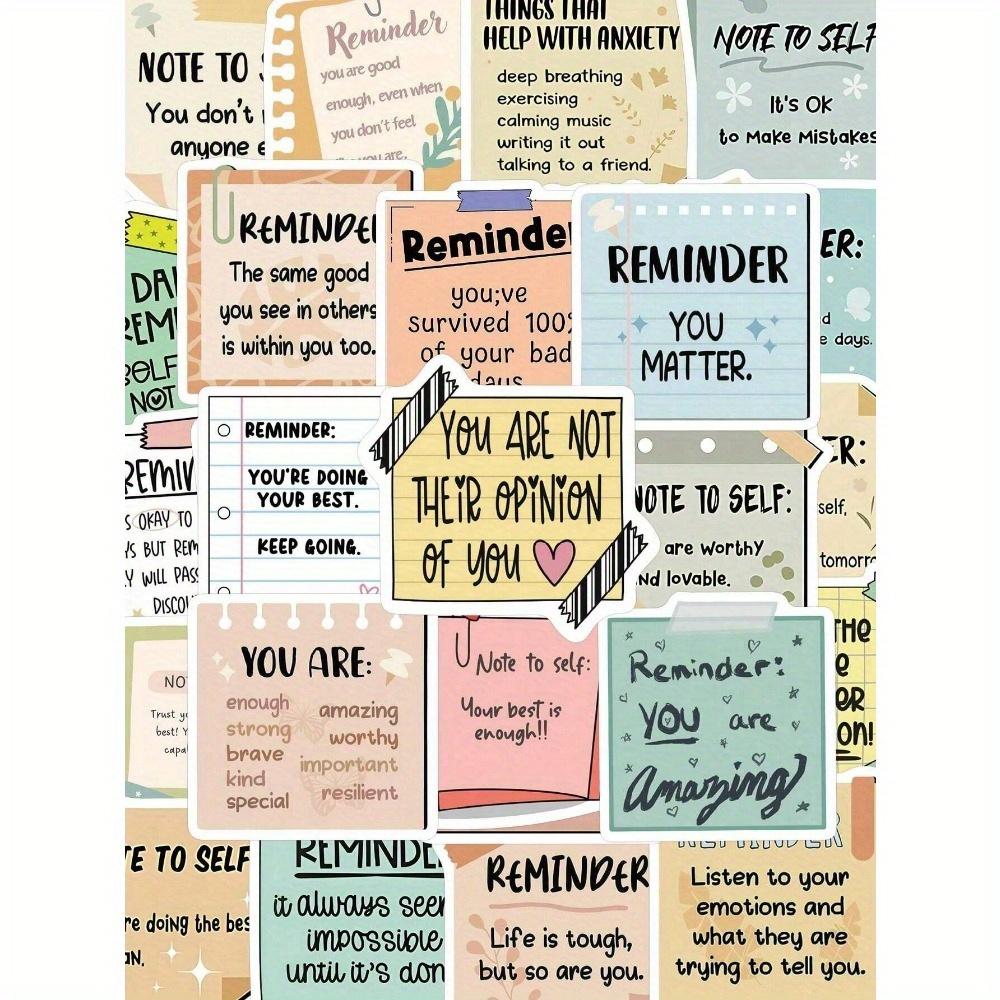 NOTE TO
You don't
anyone
Reminder
you are good
enough, even when
you don't feel
you are.
THINGS THAT
HELP WITH ANXIETY
deep breathing
exercising
calming music
writing it out
talking to a friend.
NOTE TO SELF
It's OK
to Make Mistakes
REMINDE
The same good
you see in others
is within you too.
Reminde
you;ve
survived 100%
of your bad
days
REMINDER
YOU
MATTER.
ER:
d
e days.
DAI
REMI
SELF
NOT
REMIN
S OKAY TO
YS BUT REM
Y WILL PAS
DISCOU
REMINDER:
YOU'RE DOING
YOUR BEST.
KEEP GOING.
YOU ARE NOT
THEIR OPINION
OF YOU
NOTE TO SELF:
are worthy
nd lovable.
ER:
self,
tomorr
THE
e
er
on!
NO
Trust yo
best! Y
capa
YOU ARE:
enough
strong
brave
kind
special
amazing
worthy
important
resilient
Note to self:
Your best is
enough!!
Reminder:
YOU are
Amazing
TE TO SELF
re doing the bes
an.
REMINDE
it always seem
impossible
until it's don
REMINDER
Life is tough,
but so are you.
REMINDER
Listen to your
emotions and
what they are
trying to tell you.